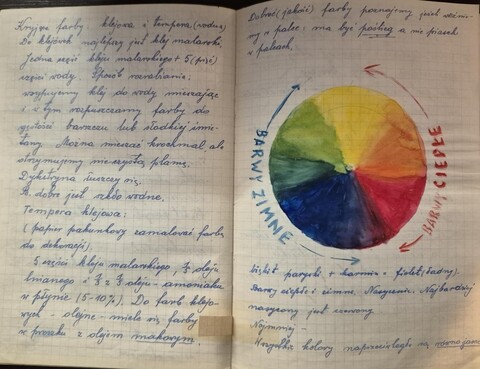 Kryjące farby klejowa i tempera (wodna)
Do klejówek najlepszy jest klej malarski.
Jedna część kleju malarskiego + 5 (pięć)
części wody. Sposób rozrabiania:
wsypujemy klej do wody mieszając
i w tym rozpuszczamy farby do
gęstości barszczu lub słodkiej śmie-
tany. Można mieszać krochmal, ale
otrzymujemy nieczystą plamę.
Dykstryna łuszczy się.
B. dobre jest szkło wodne.
Tempera klejowa:
(papier pakunkowy zamalować farbą
do dekoracji).
5 części kleju malarskiego, oleju
lnianego i oleju - amoniaku
w płynie (5-10%). Do farb klejo-
wych - olejne - miele się farby
w proszku z olejem makowym.
Dobroć (jakość) farby poznajemy jeśli weźmie-
my w palce: ma być pośliзg a nie piasek
w palcach.
BARWY ZIMNE
BARWY CIEPŁE
błękit paryski + karmin = fiolet (ładny).
Barwy ciepłe i zimne. Nasycenie. Najbardziej
nasycony jest czerwony
Najmniej -
Wszystkie kolory naprzeciwległe są